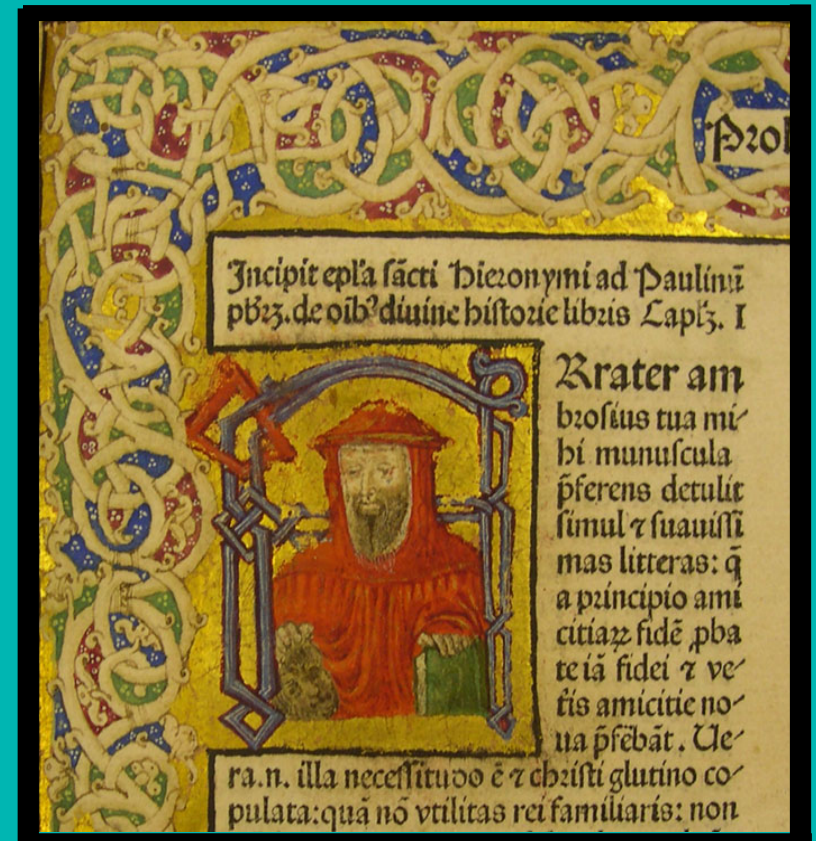 Prol
Incipit epl'a sācti Hieronymi ad Paulinū
pbrꝫ. de oibꝰ diuine historie libris Capl'ꝫ. I
Rrater am
brosius tua mi-
hi munuscula
p̄ferens detulit
simul ⁊ suauissi
mas litteras: q̄
a principio ami
citiaꝝ fidē ꝓba
te iā fidei ⁊ ve-
t̄is amicitie no-
ua p̄febāt. Ue-
ra.n. illa necessitudo ē ⁊ christi glutino co-
pulata: quā nō vtilitas rei familiaris: non